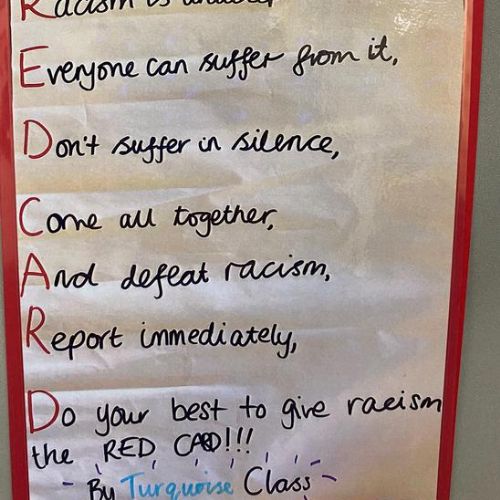 Racism is
Everyone can suffer from it,
Don't suffer in silence,
Come all together,
And defeat racism,
Report immediately,
Do your best to give racism
the RED CARD!!!
By Turquoise Class